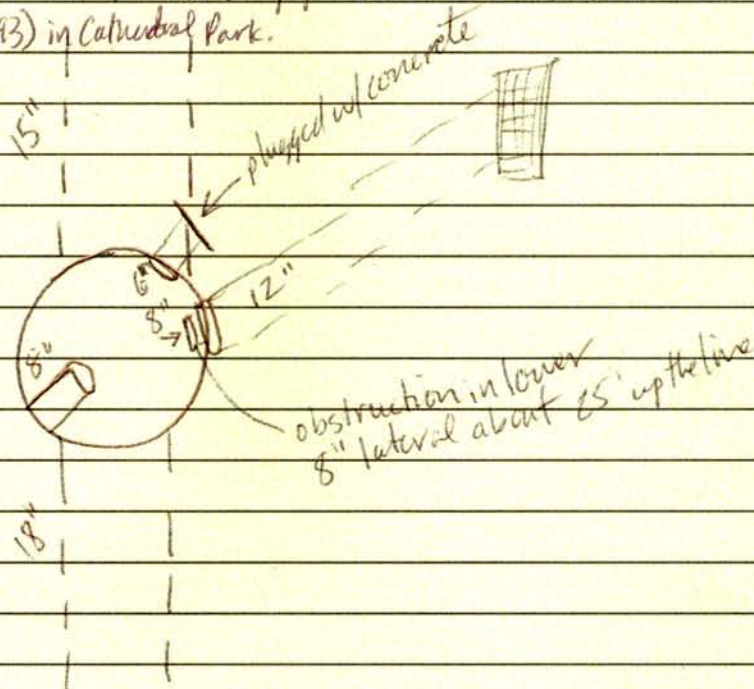 93) in Cathedral Park.
15"
plugged w/ concrete
6"
12"
8"
8"
obstruction in lower
8" lateral about 25' up the line
18"